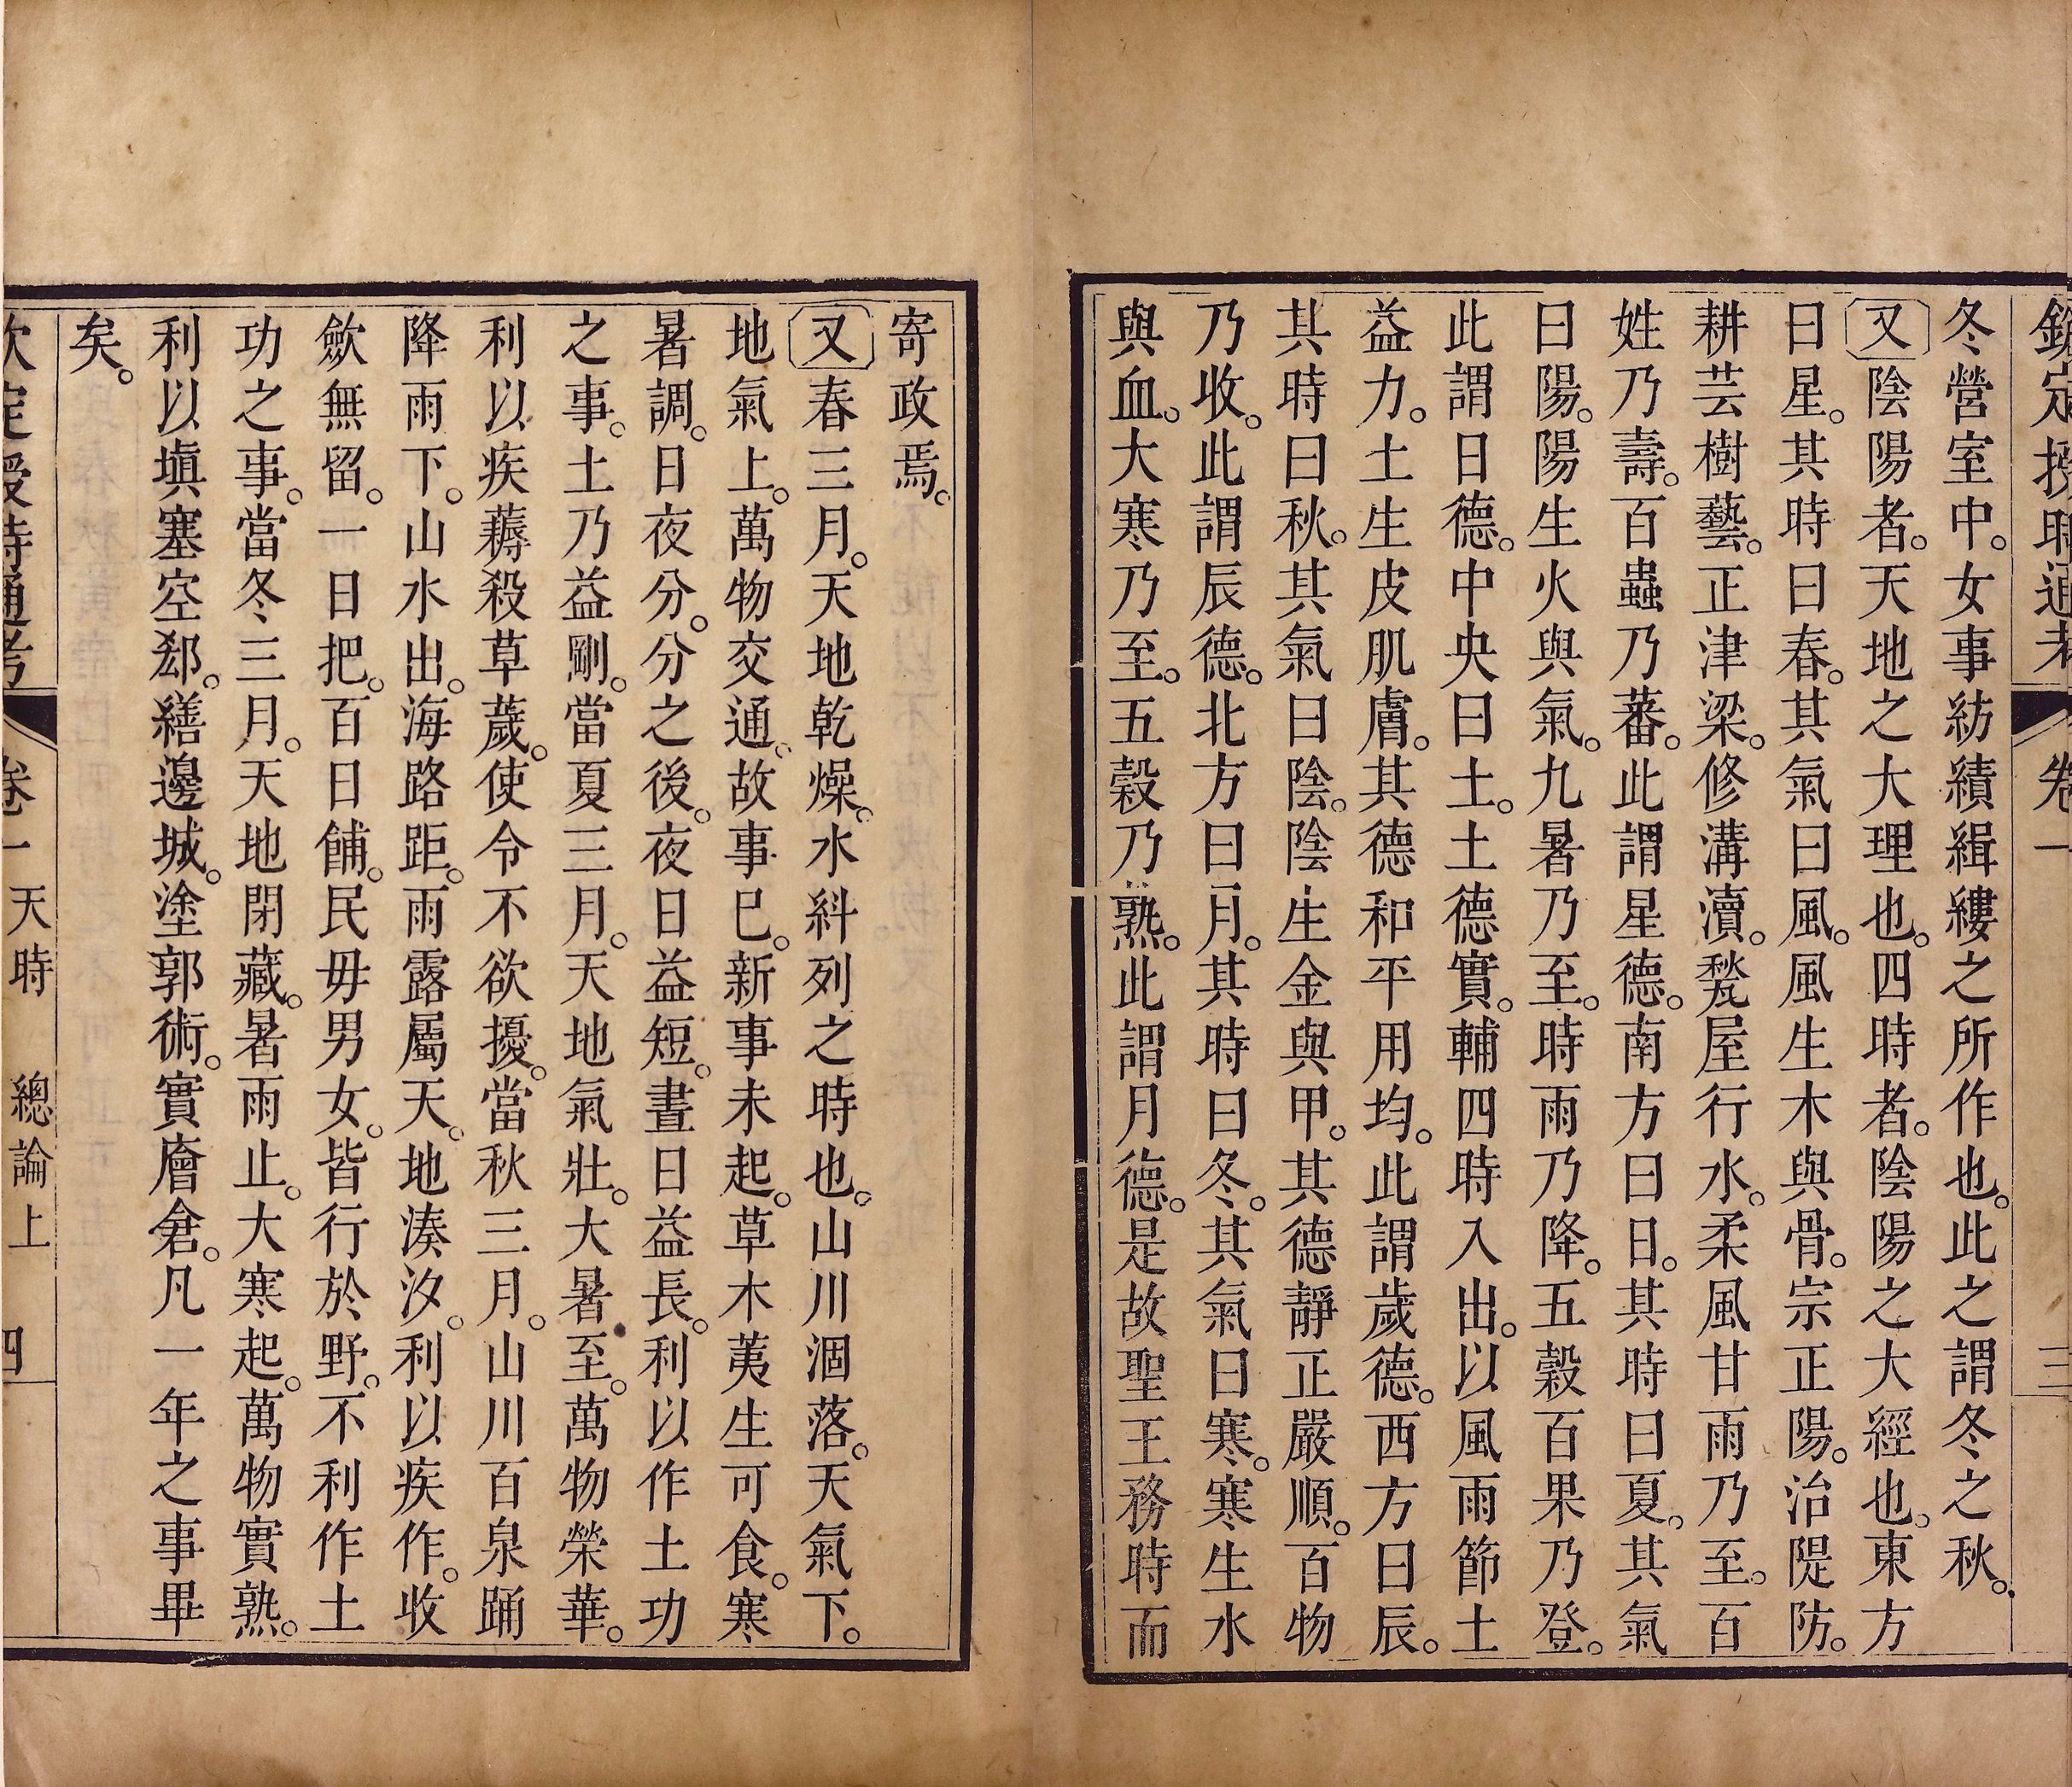 欽定授時通考 卷一 三
冬營室中。女事紡績緝縷之所作也。此之謂冬之秋。
又陰陽者。天地之大理也。四時者。陰陽之大經也。東方
曰星。其時曰春。其氣曰風。風生木與骨。宗正陽。治隄防。
耕芸樹藝。正津梁。修溝瀆。甃屋行水。柔風甘雨乃至。百
姓乃壽。百蟲乃蕃。此謂星德。南方曰日。其時曰夏。其氣
曰陽。陽生火與氣。九暑乃至。時雨乃降。五穀百果乃登。
此謂日德。中央曰土。土德實。輔四時入出。以風雨節土
益力。土生皮肌膚。其德和平用均。此謂歲德。西方曰辰。
其時曰秋。其氣曰陰。陰生金與甲。其德靜正嚴順。百物
乃收。此謂辰德。北方曰月。其時曰冬。其氣曰寒。寒生水
與血。大寒乃至。五穀乃熟。此謂月德。是故聖王務時而
寄政焉。
又春三月。天地乾燥。水糾列之時也。山川涸落。天氣下。
地氣上。萬物交通。故事已。新事未起。草木荑生可食。寒
暑調。日夜分。分之後。夜日益短。晝日益長。利以作土功
之事。土乃益剛。當夏三月。天地氣壯。大暑至。萬物榮華。
利以疾薅殺草薉。使令不欲擾。當秋三月。山川百泉踊
降雨下。山水出。海路距。雨露屬天。地湊汐。利以疾作。收
歛無留。一日把。百日餔。民毋男女。皆行於野。不利作土
功之事。當冬三月。天地閉藏。暑雨止。大寒起。萬物實熟。
利以塡塞空郄。繕邊城。塗郭術。實廥倉。凡一年之事畢
矣。
欽定授時通考 卷一 天時 總論上 四